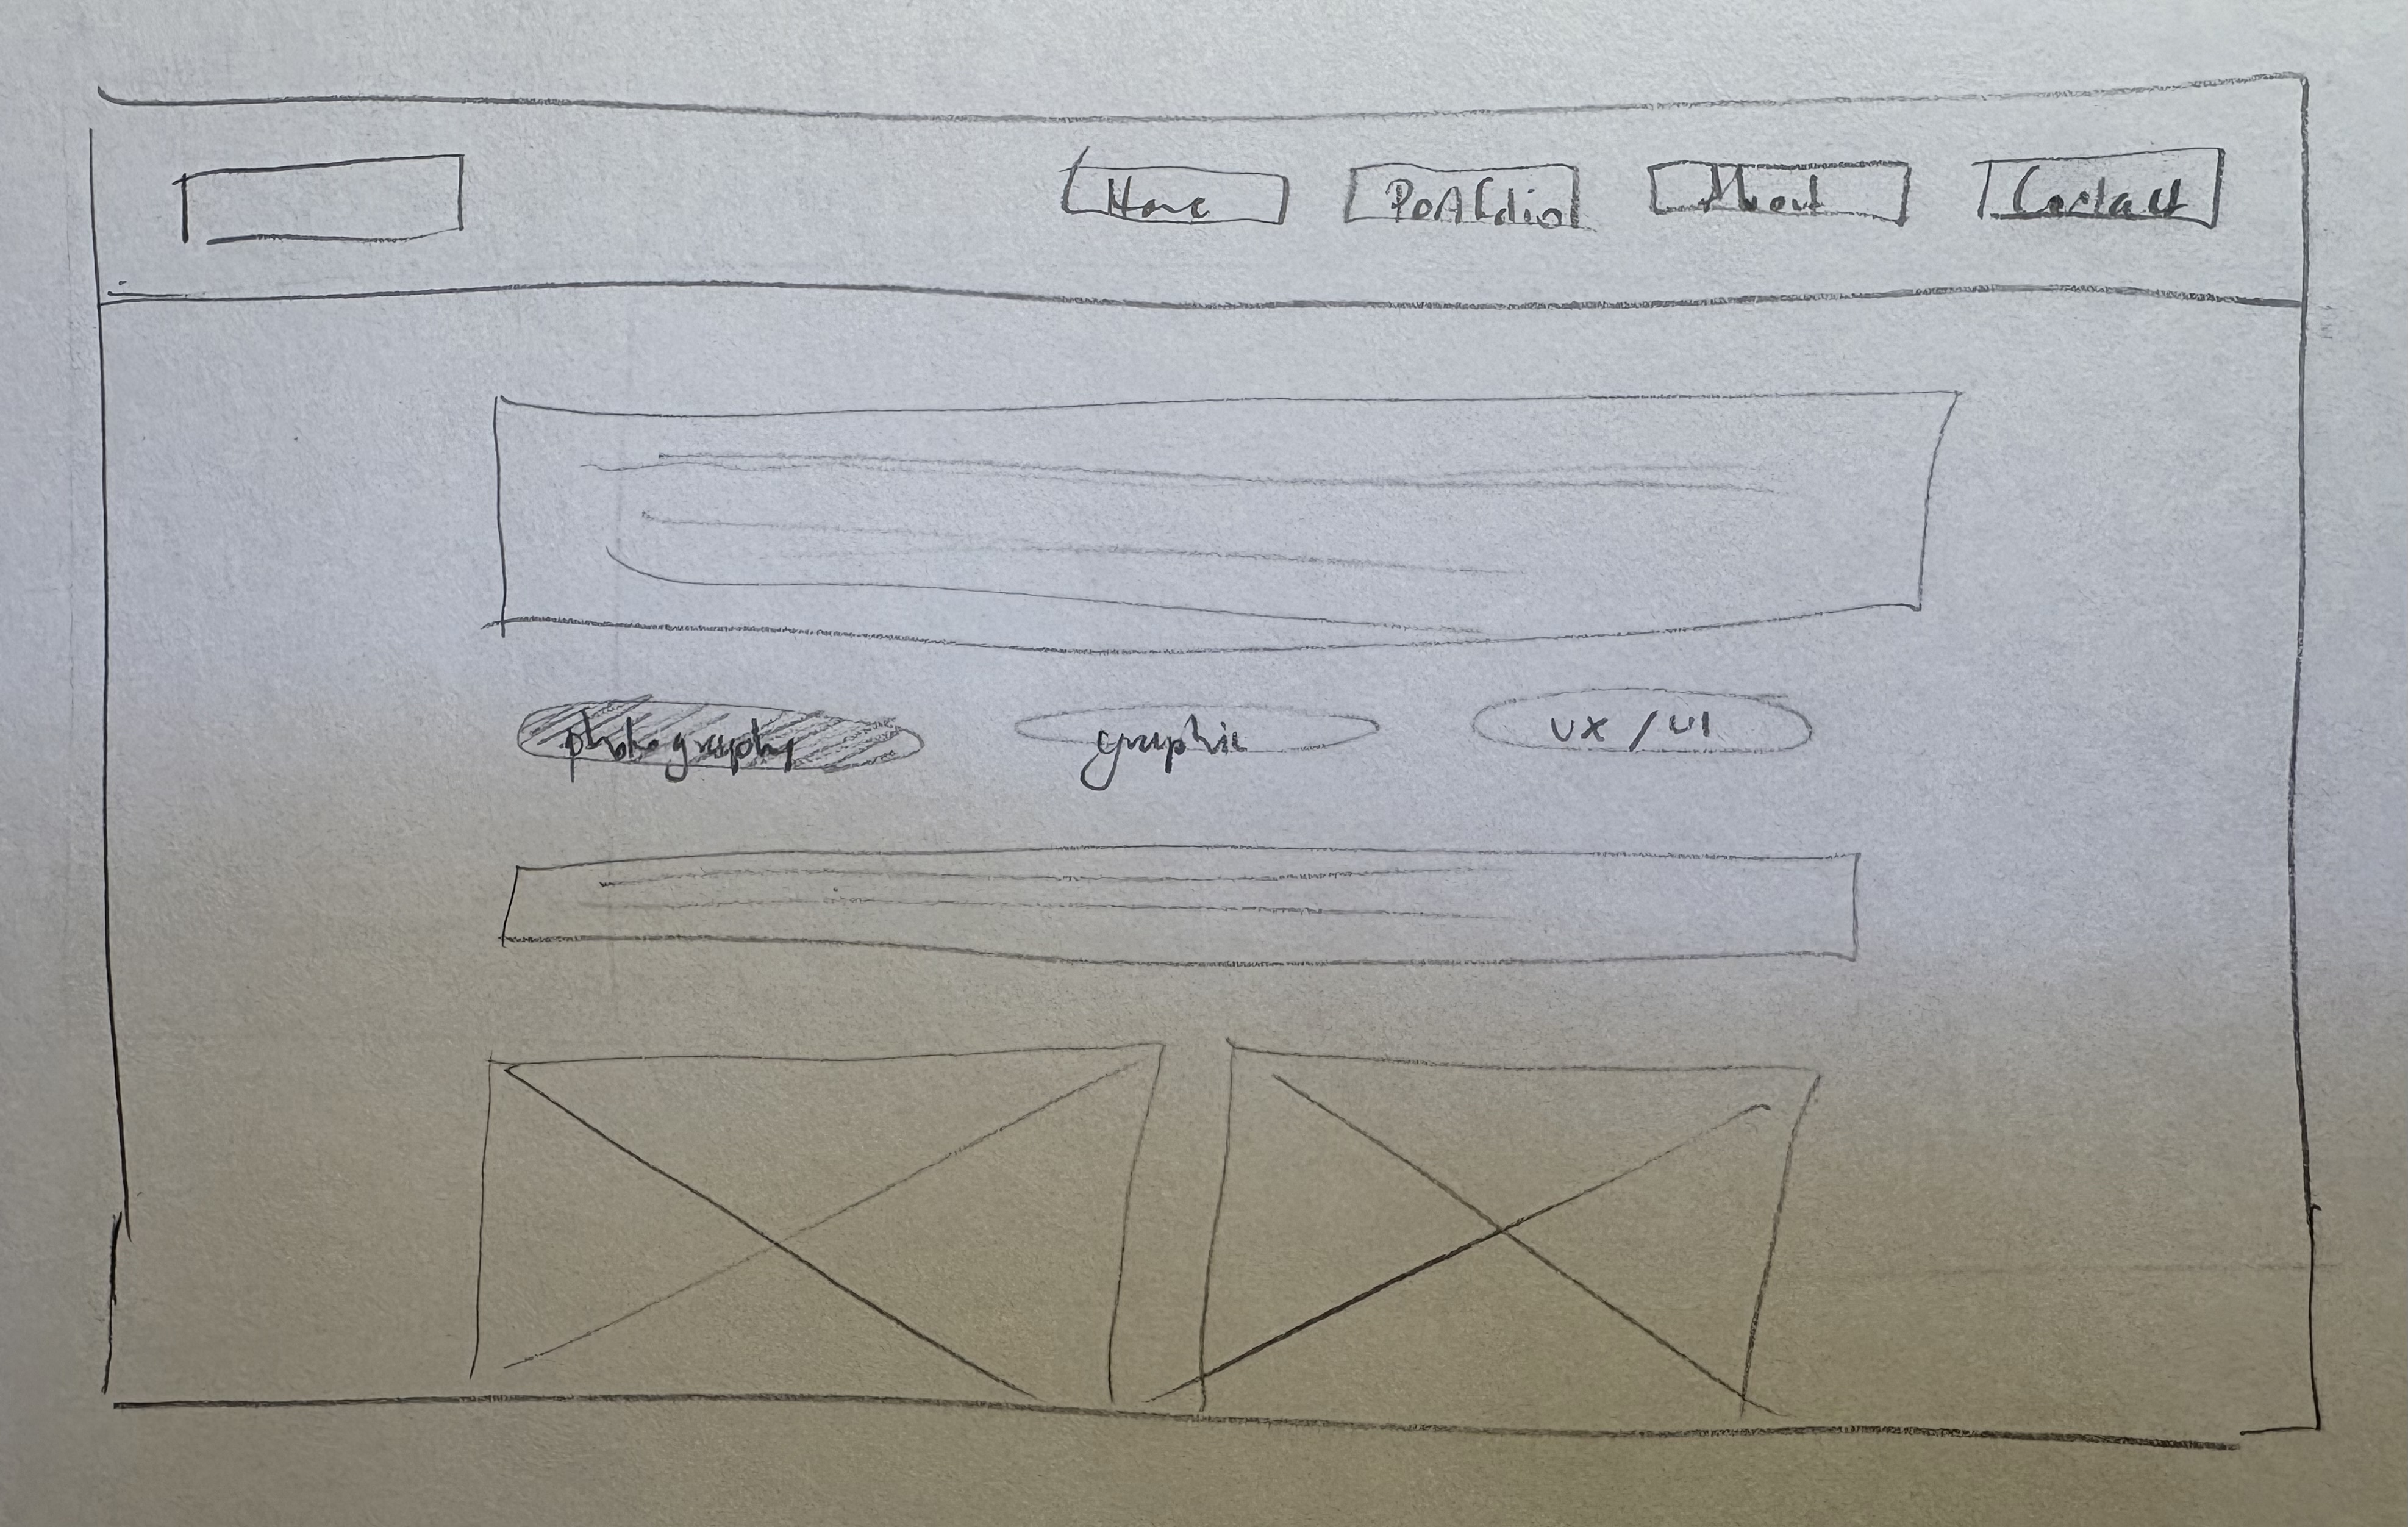 Home Portfolio About Contact
photography graphic UX / UI